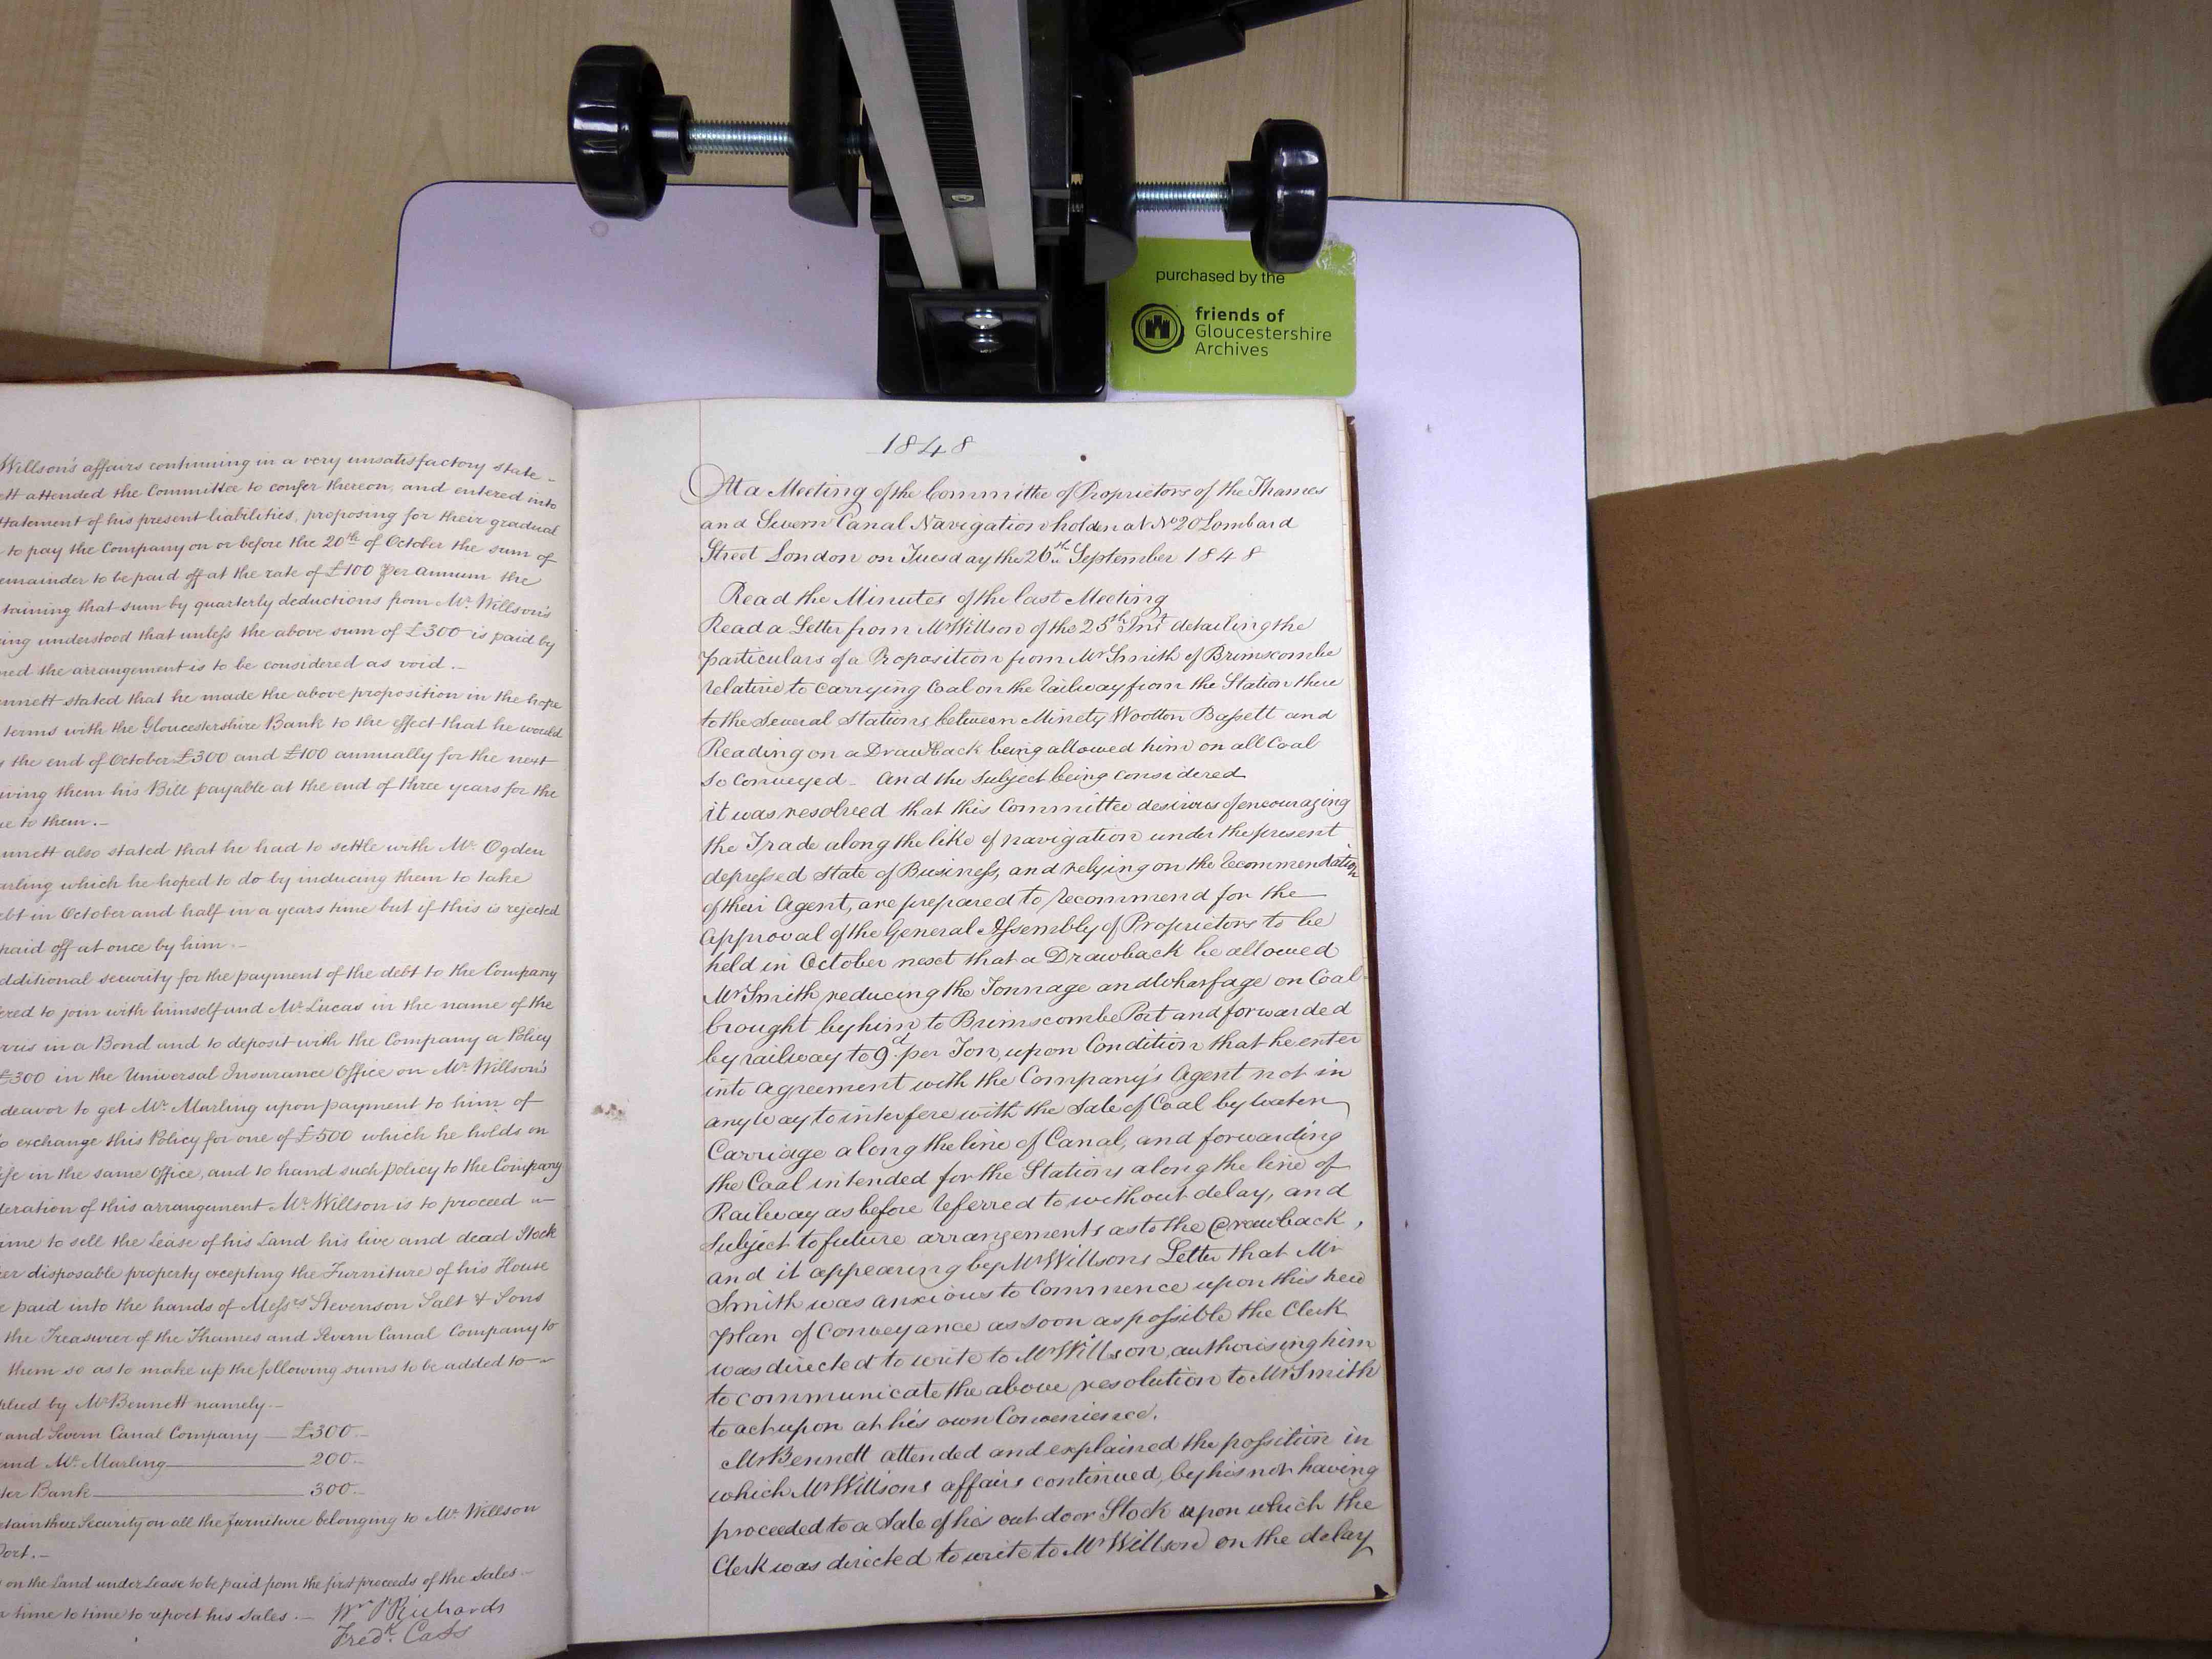 purchased by the
friends of
Gloucestershire
Archives
Willson's affairs continuing in a very unsatisfactory state -
ett attended the Committee to confer thereon, and entered into
tatement of his present liabilities, proposing for their gradual
to pay the Company on or before the 20th of October the sum of
emainder to be paid off at the rate of £100 per annum the
taining that sum by quarterly deductions from Mr. Willson's
ing understood that unless the above sum of £300 is paid by
ned the arrangement is to be considered as void. -
nnett stated that he made the above proposition in the hope
terms with the Gloucestershire Bank to the effect that he would
the end of October £300 and £100 annually for the next
iving them his Bill payable at the end of three years for the
ue to them. -
nnett also stated that he had to settle with Mr. Ogden
arling which he hoped to do by inducing them to take
ebt in October and half in a years time but if this is rejected
paid off at once by him. -
dditional security for the payment of the debt to the Company
ered to join with himself and Mr. Lucas in the name of the
rris in a Bond and to deposit with the Company a Policy
£300 in the Universal Insurance Office on Mr. Willson's
deavor to get Mr. Marling upon payment to him of
to exchange this Policy for one of £500 which he holds on
ife in the same Office, and to hand such policy to the Company
deration of this arrangement Mr. Willson is to proceed -
ime to sell the Lease of his Land his live and dead Stock
er disposable property excepting the Furniture of his House
e paid into the hands of Messrs Stevenson Salt & Sons
the Treasurer of the Thames and Severn Canal Company to
them so as to make up the following sums to be added to -
plied by Mr Bennett namely -
and Severn Canal Company - £300 -
and Mr. Marling - 200 -
ter Bank - 300 -
etain these Security on all the furniture belonging to Mr. Willson
Port. -
on the Land under Lease to be paid from the first proceeds of the sales -
time to time to report his sales. - Wm P Richards
Fredk. Cass
1848
At a Meeting of the Committee of Proprietors of the Thames
and Severn Canal Navigation holden at No 20 Lombard
Street London on Tuesday the 26th September 1848
Read the Minutes of the last Meeting
Read a Letter from Mr Willson of the 25th Inst detailing the
particulars of a Proposition from Mr Smith of Brimscombe
relative to carrying Coal on the railway from the Station there
to the Several Stations between Minety Wootton Bassett and
Reading on a Drawback being allowed him on all Coal
so Conveyed - And the Subject being considered
it was resolved that this Committee desirous of encouraging
the Trade along the like of navigation under the present
depressed State of Business, and relying on the recommendation
of their Agent, are prepared to recommend for the
approval of the General Assembly of Proprietors to be
held in October next that a Drawback be allowed
Mr Smith reducing the Tonnage and Wharfage on Coal
brought by him to Brimscombe Port and forwarded
by railway to 9d per Ton, upon Condition that he enter
into agreement with the Company's Agent not in
any way to interfere with the Sale of Coal by water
Carriage along the line of Canal, and forwarding
the Coal intended for the Stations along the line of
Railway as before referred to without delay, and
Subject to future arrangements as to the Drawback,
and it appearing by Mr Willsons Letter that Mr
Smith was anxious to Commence upon this new
plan of Conveyance as soon as possible the Clerk
was directed to write to Mr Willson, authorising him
to communicate the above resolution to Mr Smith
to act upon at his own Convenience.
Mr Bennett attended and explained the possition in
which Mr Willsons affairs continued, by his not having
proceeded to a Sale of his out door Stock upon which the
Clerk was directed to write to Mr Willson on the delay